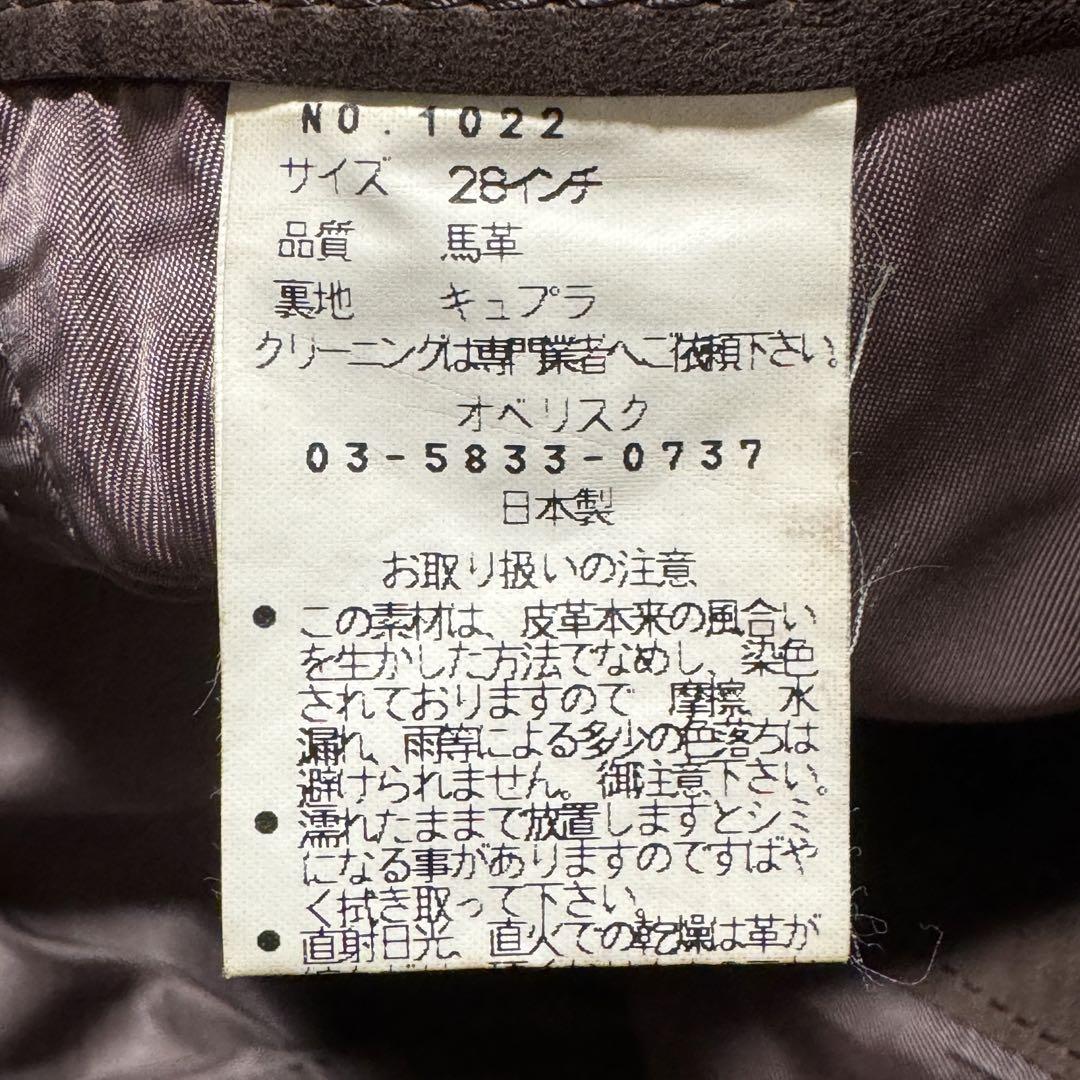 NO.1022
サイズ 28インチ
品質 馬革
裏地 キュプラ
クリーニングは専門業者へご依頼下さい。
オベリスク
03-5833-0737
日本製
お取り扱いの注意
● この素材は、皮革本来の風合い
を生かした方法でなめし、染色
されておりますので 摩擦、水
漏れ、雨等による多少の色落ちは
避けられません。御注意下さい。
● 濡れたままで放置しますとシミ
になる事がありますのですばや
く拭き取って下さい。
● 直射日光、直人での乾燥は革が